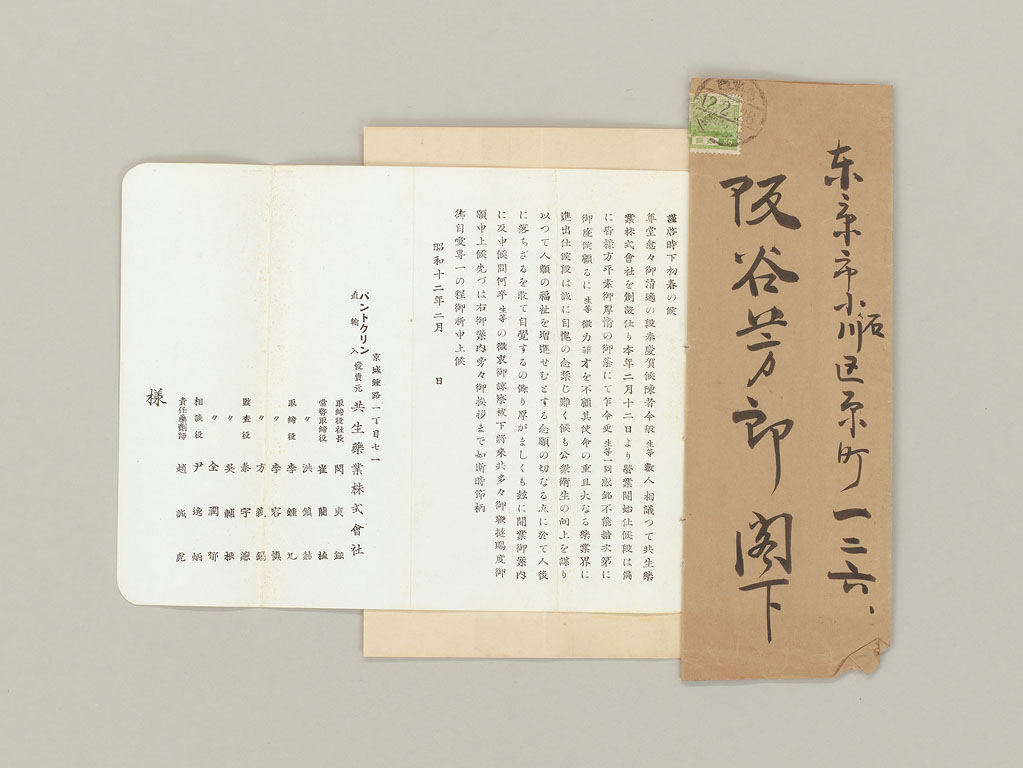 東京市小石川区原町一二六、
阪谷芳郎閣下
12.2
謹啓時下初春の候
尊堂愈々御清適の段奉慶賀候陳者今般生等數人相議つて共生藥
業株式會社を創設仕り本年二月十二日より營業開始仕候段は偏
に皆樣方平素御厚情の御蔭にて乍今更生等一同感銘不能措次第に
御座候顧るに生等微力菲才を不顧其使命の重且大なる藥業界に
進出仕候段は誠に自愧の念禁じ難く候も公衆衛生の向上を謀り
以つて人類の福祉を增進せむとする念願の切なる点に於て人後
に落ちざるを敢て自覺するの餘り厚がましくも玆に開業御案内
に及申候間何卒生等の微衷御諒察被下將來共多々御鞭撻賜度御
願申上候先づは右御案内旁々御挨拶まで如斯時節柄
御自愛專一の程御祈申上候
昭和十二年二月 日
京城鍾路一丁目七一
パントクリン
直輸入發賣元 共生藥業株式會社
取締役社長 閔奭鉉
常務取締役 崔蘭植
〃 洪鎮
取締役 李鍾允
〃 李容愼
〃 方義錫
監査役 秦宇聰
〃 吳輔根
〃 金潤郁
相談役 尹逸炳
責任藥劑師 趙誠虎
樣